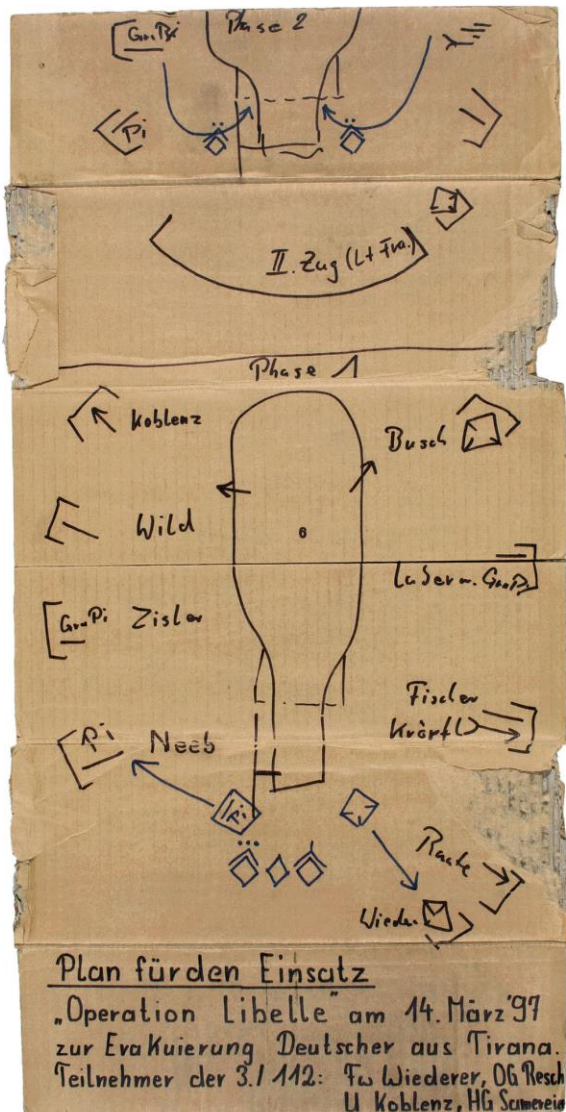 GraPi
Phase 2
Pi
II. Zug (Lt Fra.)
Phase 1
Koblenz
Busch
Wild
6
Lader m. GraPi
GraPi Zisler
Fischer
Pi Neeb
Kröpfl
Pi
Raute
Wieder.
Plan für den Einsatz
„Operation Libelle" am 14. März '97
zur Evakuierung Deutscher aus Tirana.
Teilnehmer der 3./112: Fw Wiederer, OG Resch
U Koblenz, HG